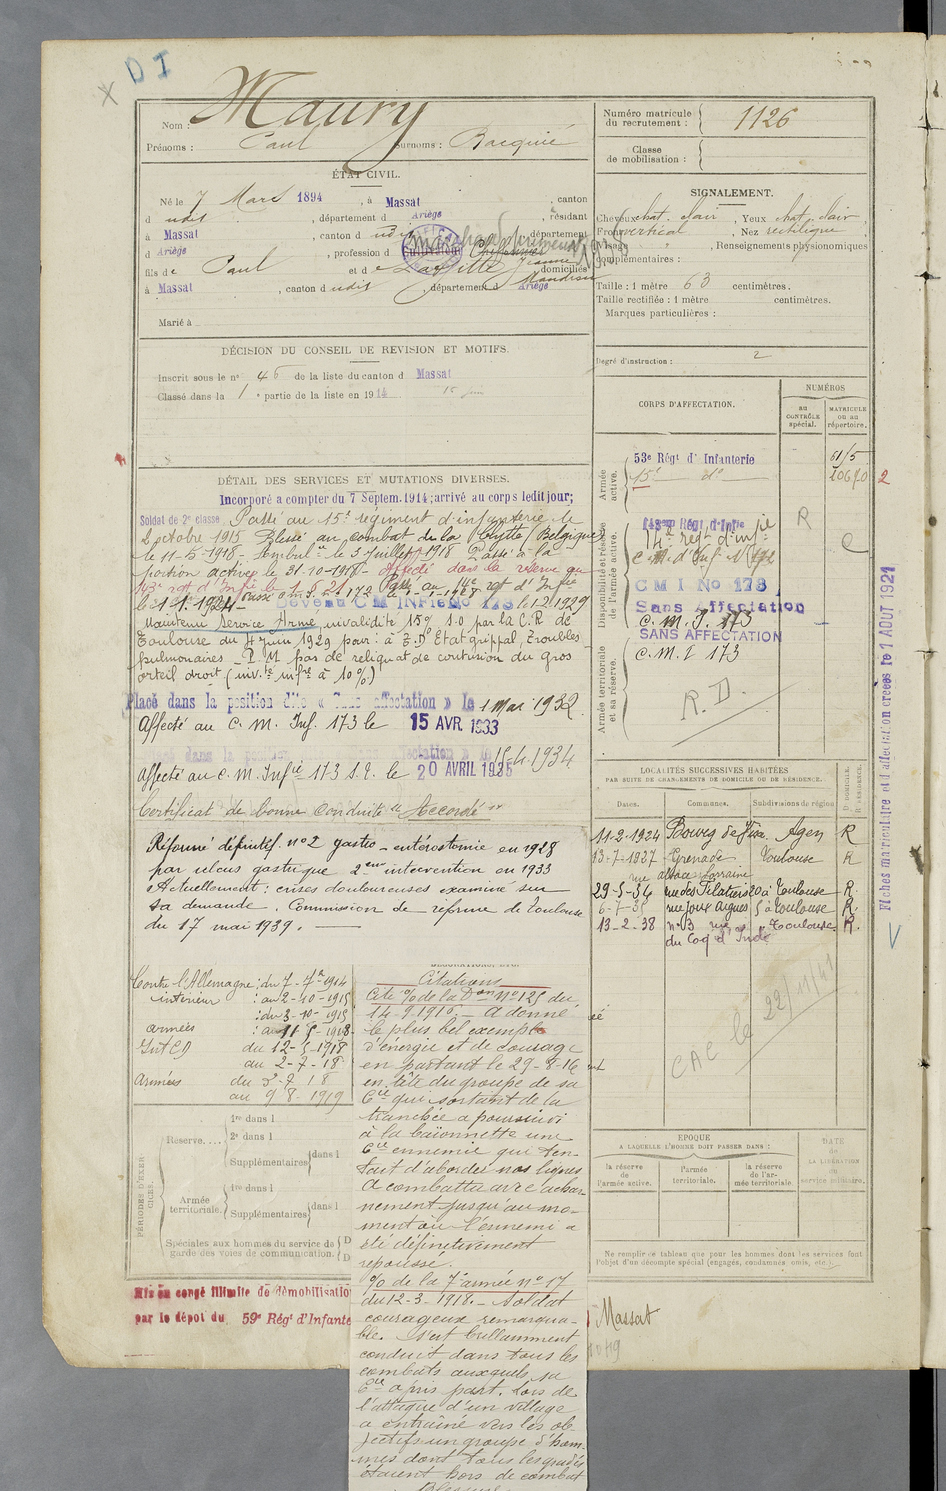 D I
X
Maury
Nom :
Prénoms : Paul Surnoms : Bacquié
Numéro matricule du recrutement : 1126
Classe de mobilisation :
ÉTAT CIVIL.
Né le 7 Mars 1894, à Massat, canton
d udit, département d Ariège, résidant
à Massat, canton d udit, département
d Ariège, profession d Cultivateur
fils de Paul et de Laffitte Jeanne domiciliés
à Massat, canton d udit, département d Ariège
Marié à
SIGNALEMENT.
Cheveux chat. clair, Yeux chat. clair
Front vertical, Nez rectiligne
Visage, Renseignements physionomiques
complémentaires :
Taille : 1 mètre 63 centimètres.
Taille rectifiée : 1 mètre centimètres.
Marques particulières :
Degré d'instruction : 2
DÉCISION DU CONSEIL DE REVISION ET MOTIFS.
Inscrit sous le n° 46 de la liste du canton d Massat
Classé dans la 1e partie de la liste en 1914
CORPS D'AFFECTATION.
NUMÉROS
au CONTRÔLE spécial.
MATRICULE ou au répertoire.
Armée active.
53e Régt d'Infanterie
15e do
Disponibilité et réserve de l'armée active.
143e Régt d'Infie
14e regt d'Infie
C M I No 173
Sans Affectation
C. M. I. 173
SANS AFFECTATION
Armée territoriale et sa réserve.
C. M. I 173
R. D.
R
DÉTAIL DES SERVICES ET MUTATIONS DIVERSES.
Incorporé a compter du 7 Septem. 1914; arrivé au corps ledit jour;
Soldat de 2e classe Passé au 15e régiment d'infanterie le
2 octobre 1915 Blessé au combat de la Clytte (Belgique)
le 11-5-1918 – le 3 Juillet 1918 Passé à la
portion active le 31-10-1918 – Affecté dans la réserve au
143e rgt d'Infie le 1.6.21 Passé au 14e rgt d'Infie
le 1.1.1924 – Devenu C M INFie No 173 le 1.2.1929
Maintenu Service Armé invalidité 15% S.O par la C.R de
Toulouse du 4 Juin 1929 pour : à E.D. Etat grippal, troubles
pulmonaires – P.M pas de reliquat de contusion du gros
orteil droit (inv.té infre à 10%)
Placé dans la position dite « Sans affectation » Le 1 Mai 1932.
Affecté au C. M. Inf. 173 le 15 AVR. 1933
15.4.1934
Affecté au C. M. Infie 173 S.R. le 20 AVRIL 1935
Certificat de bonne conduite "Accordé"
Réformé définitif n°2 gastro-entérostomie en 1928
par ulcus gastrique 2eme intervention en 1933
Actuellement : crises douloureuses examiné sur
sa demande. Commission de réforme de Toulouse
du 17 mai 1939.
LOCALITÉS SUCCESSIVES HABITÉES
PAR SUITE DE CHANGEMENTS DE DOMICILE OU DE RÉSIDENCE.
Dates. Communes. Subdivisions de région D. DOMICILE. R. RÉSIDENCE.
11-2-1924 Bourg de Visa. Agen R
13-7-1927 Grenade Toulouse R
rue alsace Lorraine
29-5-34 rue des Filatiers 20 à Toulouse R.
6-7-35 rue Joux Aigues 5 à Toulouse R.
13-2-38 n° 3 rue Toulouse R.
du Coq d'Inde
CAC le 22/11/41
Fiches matriculaire et d'affectation créées le 1 AOUT 1921
Contre l'Allemagne : du 7-7bre 1914
intérieur : au 2-10-1915
: du 3-10-1915
armées : au 11-5-1918
Int CD du 12-5-1918
au 2-7-18
Armées du 3-7-18
au 9-8-1919
Citations
Cité % de la Don N° 125 du
14-9-1916 – A donné
le plus bel exemple
d'énergie et de courage
en partant le 29-8-16
en tête du groupe de sa
Cie qui sortant de la
tranchée a poursuivi
à la baïonnette une
Cie ennemie qui ten-
tait d'aborder nos lignes
A combattu avec achar-
nement jusqu'au mo-
ment où l'ennemi a
été définitivement
repoussé.
% de la 7e armée n° 17
du 12-3-1918. – Soldat
courageux remarqua-
ble. S'est brillamment
conduit dans tous les
combats auxquels sa
Cie a pris part. Lors de
l'attaque d'un village
a entraîné vers les ob-
jectifs un groupe d'hom-
mes dont tous les gradés
étaient hors de combat
PÉRIODES D'EXERCICES.
Réserve.... 1re dans l
2e dans l
Supplémentaires dans l
Armée territoriale. 1re dans l
Supplémentaires dans l
Spéciales aux hommes du service de garde des voies de communication.
EPOQUE
A LAQUELLE L'HOMME DOIT PASSER DANS :
la réserve de l'armée active.
l'armée territoriale.
la réserve de l'armée territoriale.
DATE de LA LIBÉRATION du service militaire.
Ne remplir ce tableau que pour les hommes dont les services font
l'objet d'un décompte spécial (engagés, condamnés, omis, etc.).
Mis en congé illimité de démobilisatio
par le dépôt du 59e Régt d'Infante
Massat